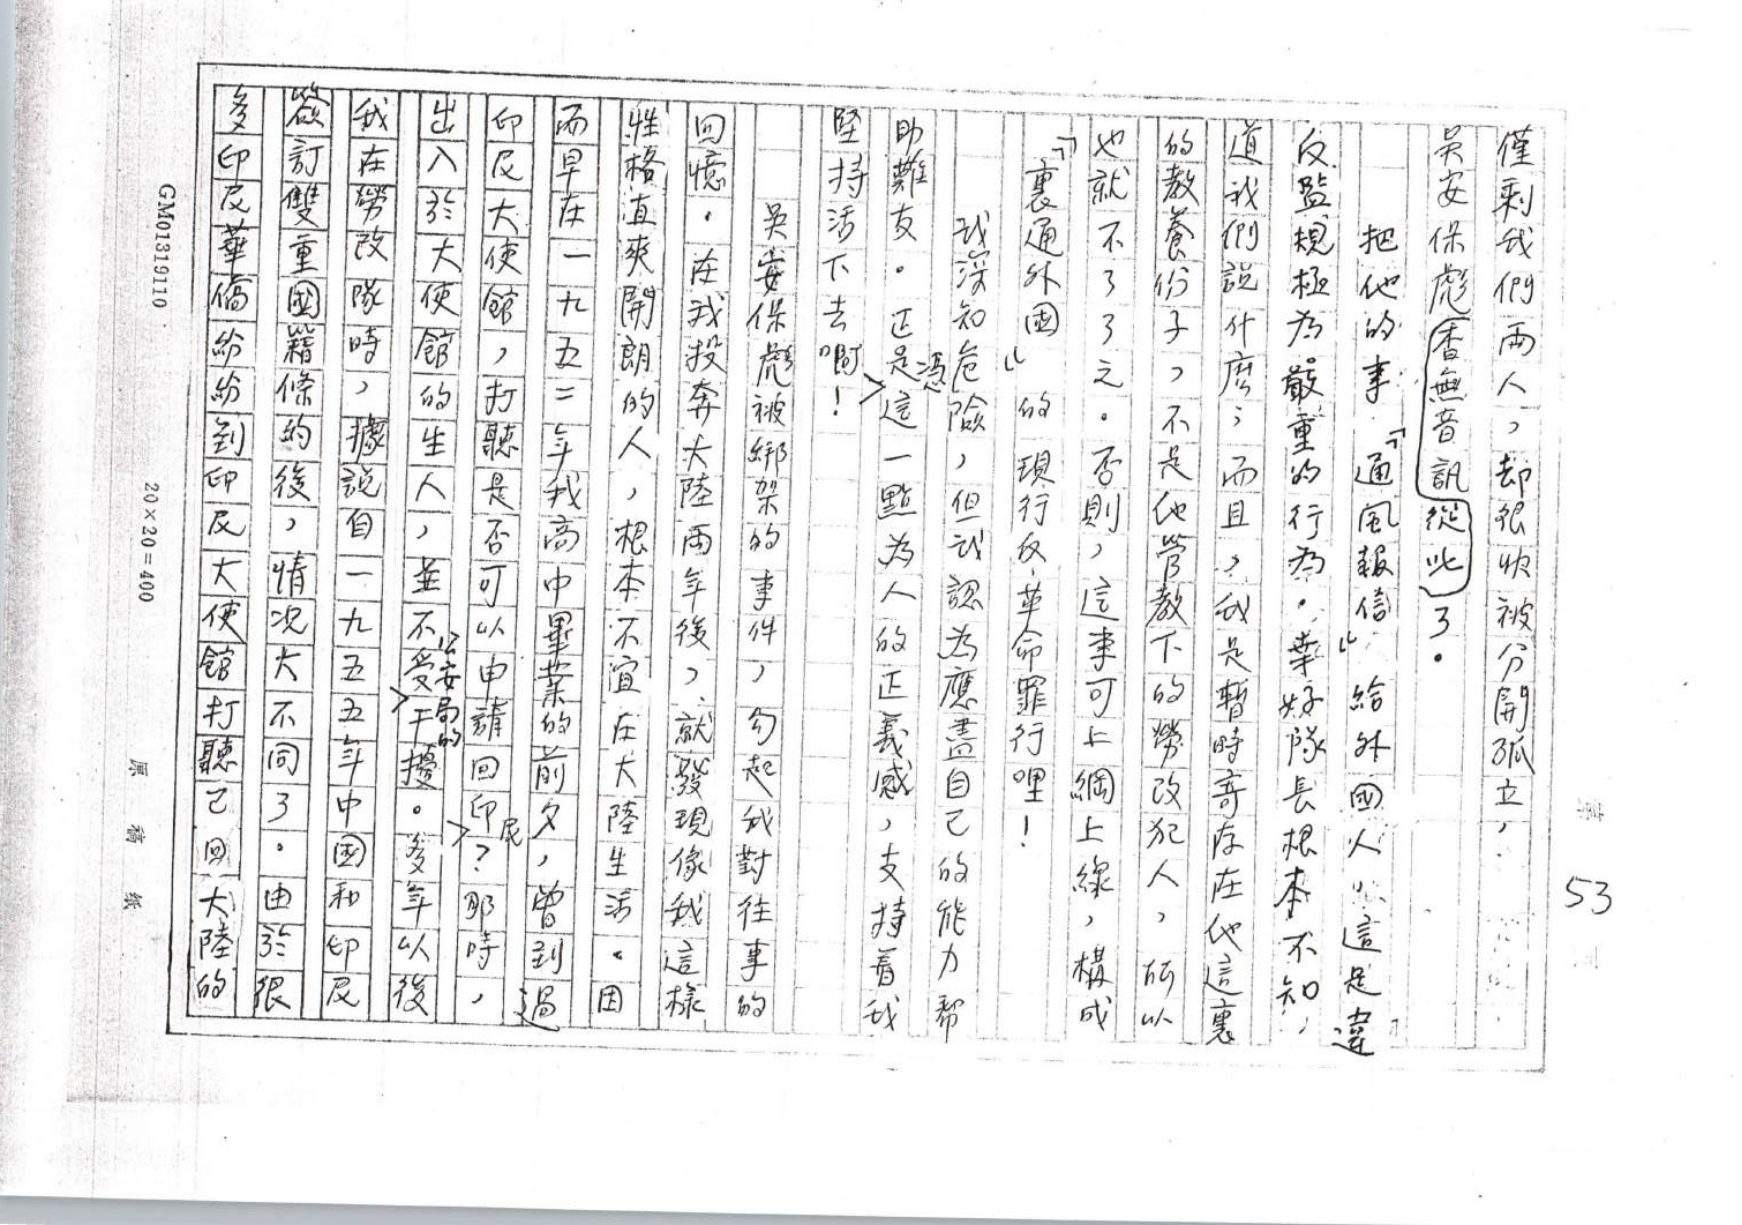 53
僅剩我們兩人，却很快被分開孤立，
吳安保彪杳無音訊從此了。
把他的事「通風報信」給外國人，這是違
反監規極為嚴重的行為。葉好隊長根本不知
道我們說什麽；而且，我是暫時寄存在他這裏
的教養份子，不是他管教下的勞改犯人，所以
也就不了了之。否則，這事可上綱上線，構成
「裏通外國」的現行反革命罪行哩！
我深知危險，但我認為應盡自己的能力幫
助難友。正是憑這一點為人的正義感，支持着我
堅持活下去啊！
吳安保彪被綁架的事件，勾起我對往事的
回憶。在我投奔大陸兩年後，就發現像我這樣
性格直爽開朗的人，根本不宜在大陸生活。因
而早在一九五二年我高中畢業的前夕，曾到過
印尼大使館，打聽是否可以申請回印尼？那時，
出入於大使館的生人，並不受公安局的干擾。多年以後
我在勞改隊時，據說自一九五五年中國和印尼
簽訂雙重國籍條約後，情況大不同了。由於很
多印尼華僑紛紛到印尼大使館打聽已回大陸的
GM01319110
20×20=400
原稿紙